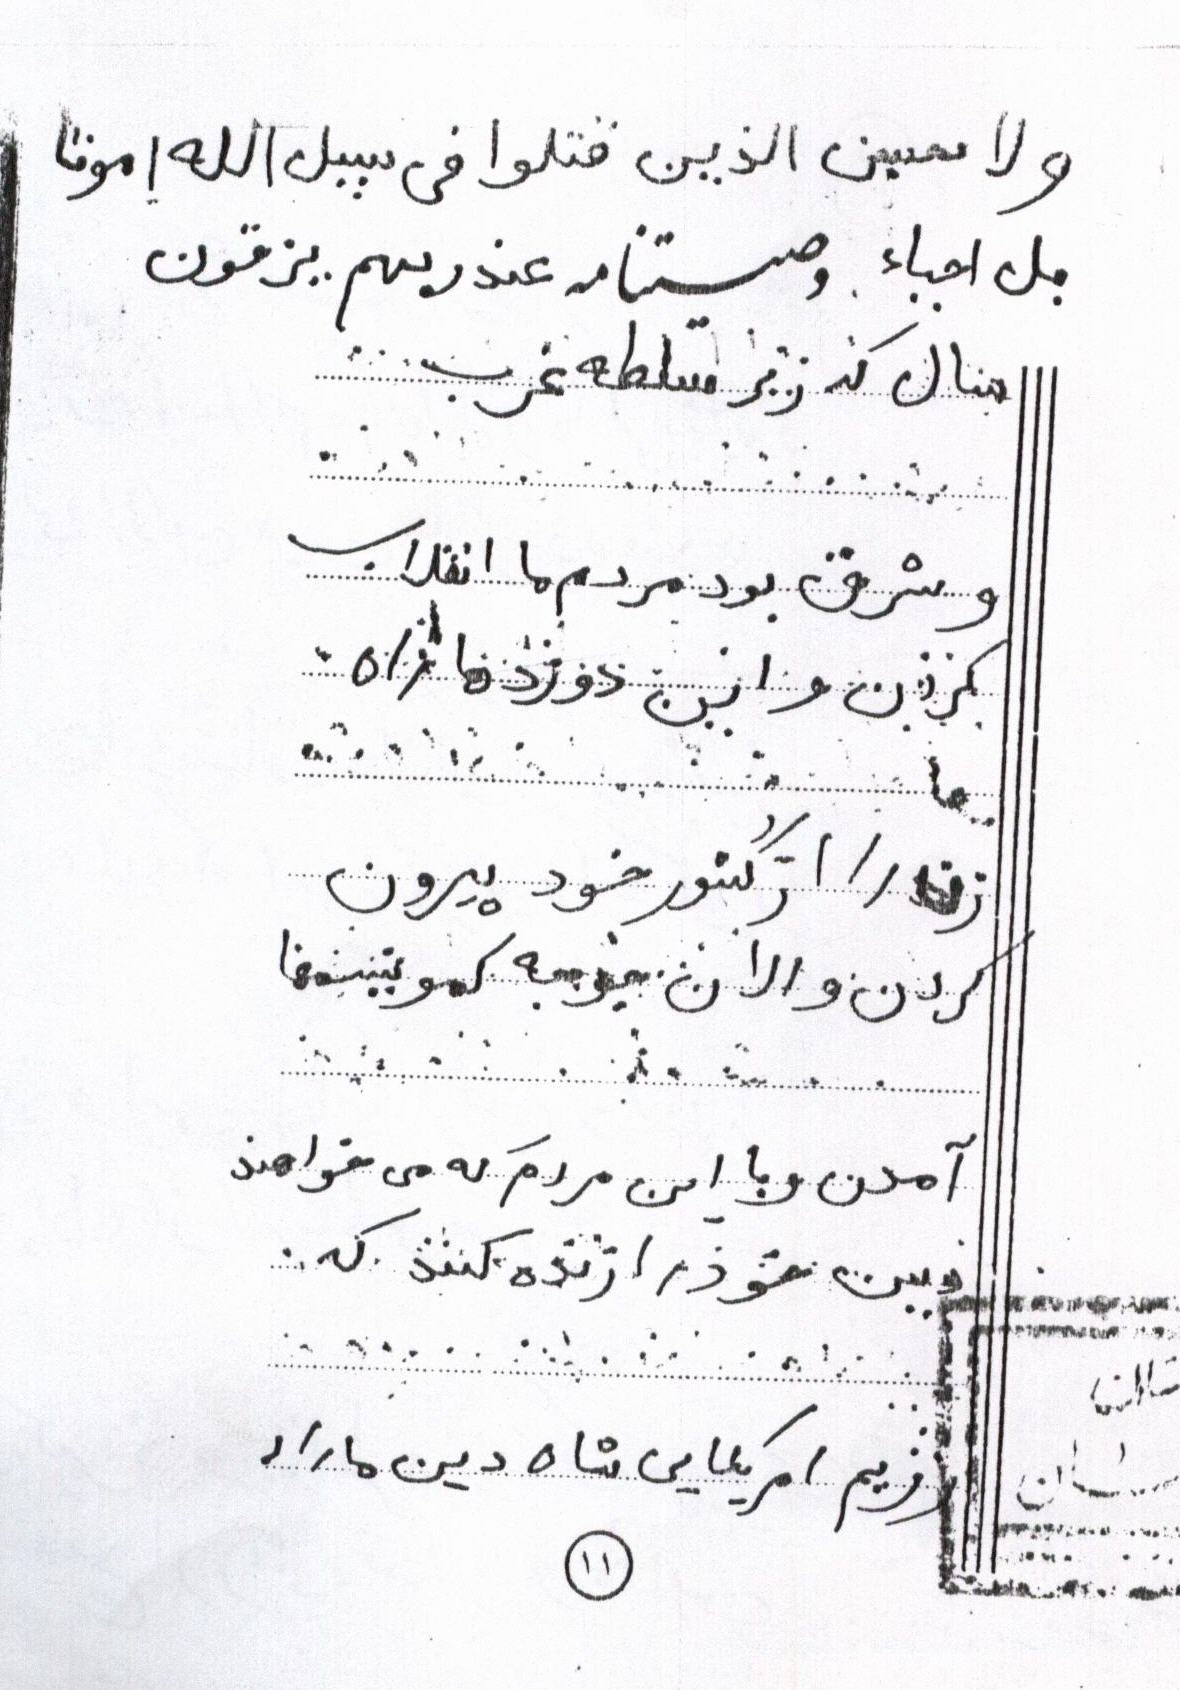 ولا تحسبن الذین قتلوا فی سبیل الله امواتا
بل احیاء وصیتنامه عند ربهم یرزقون
سال که زیر سلطه غرب
و شرق بود مردم ما انقلاب
کردن و این دوزدها راه
ها
را از کشور خود بیرون
کردن و الان کمونیستها
آمدن و با این مردم که می خواهند
دین خود را زنده کنند که
رژیم امریکایی شاه دین ما را از
۱۱